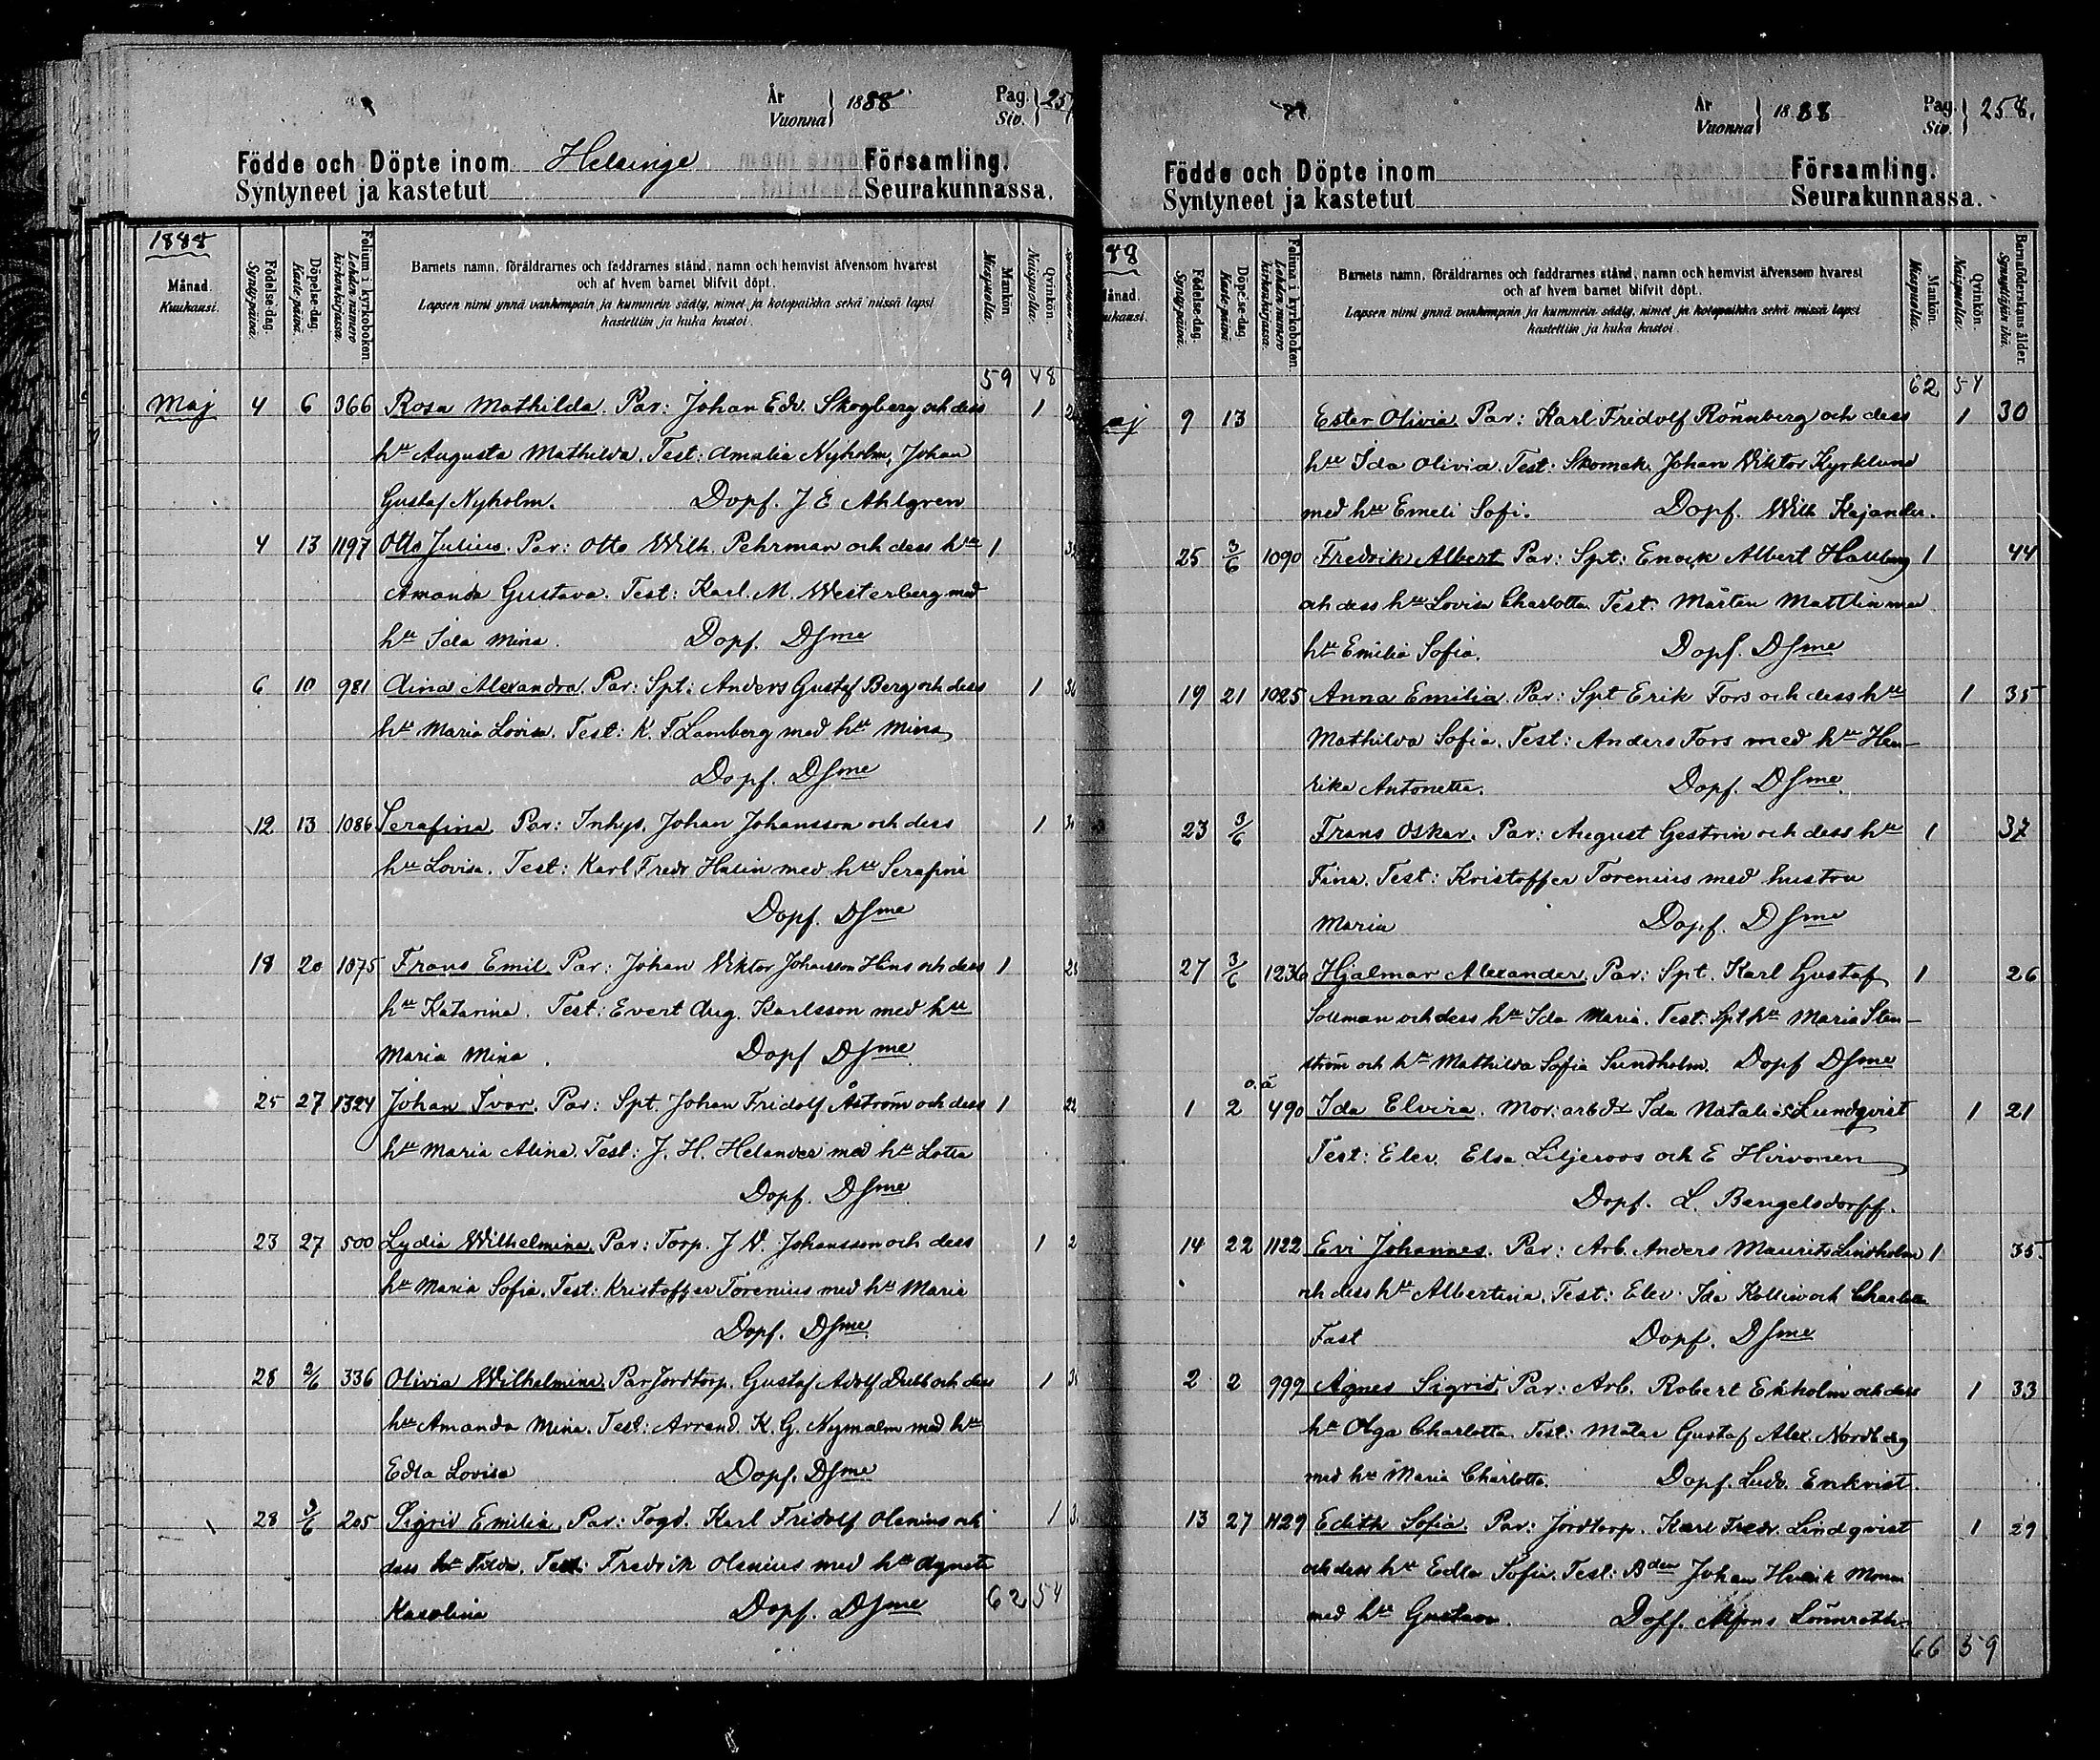 År Vuonna 1888 Pag. Siv. 257
Födde och Döpte inom Helsinge Församling.
Syntyneet ja kastetut Seurakunnassa.
1888
Månad. Kuukausi.
Födelse-dag. Syntypäivä.
Döpelse-dag. Kastepäivä.
Folium i kyrkoboken. Lehden numero kirkonkirjassa.
Barnets namn, föräldrarnes och faddrarnes stånd, namn och hemvist äfvensom hvarest
och af hvem barnet blifvit döpt.
Lapsen nimi ynnä vanhempain ja kummein sääty, nimet ja kotopaikka sekä missä lapsi
kastettiin ja kuka kastoi.
Mankön. Miespuolia.
Qvinkön. Naispuolia.
59 48
Maj 4 6 366 Rosa Mathilda. Par: Johan Edv. Skogberg och dess 1
hu Augusta Mathilda. Test: Amalia Nyholm, Johan
Gustaf Nyholm. Dopf. J E Ahlgren
4 13 1197 Otto Julius. Par: Otto Wilh. Pehrman och dess hu 1
Amanda Gustava. Test: Karl. M. Westerberg med
hu Ida Mina. Dopf. DSme
6 10 981 Aina Alexandra. Par: Spt: Anders Gustaf Berg och dess 1
hu Maria Lovisa. Test: K. F Lamberg med hu Mina
Dopf. DSme
12 13 1086 Serafina. Par: Inhys. Johan Johansson och dess 1
hu Lovisa. Test: Karl Fredr Halin med hu Serafina
Dopf. DSme
18 20 1075 Frans Emil. Par: Johan Viktor Johansson Hins och dess 1
hu Katarina. Test: Evert Aug. Karlsson med hu
Maria Mina. Dopf DSme
25 27 1324 Johan Ivar. Par: Spt. Johan Fridolf Åström och dess 1 22
hu Maria Alina. Test: J. H. Helander med hu Lotta
Dopf. DSme
23 27 500 Lydia Wilhelmina. Par: Torp. J V. Johansson och dess 1
hu Maria Sofia. Test: Kristoffer Torenius med hu Maria
Dopf. DSme
28 2/6 336 Olivia Wilhelmina. Par Jordtorp. Gustaf Adolf Dubb och dess 1
hu Amanda Mina. Test: Arrend. K. G. Nymalm med hu
Edla Lovisa Dopf. DSme
28 3/6 205 Sigrid Emilia. Par: Fogd. Karl Fridolf Olenius och 1
dess hu Tilda. Test: Fredrik Olenius med hu Agneta
Karolina Dopf. DSme
62 54
År Vuonna 1888 Pag. Siv. 258.
Födde och Döpte inom Församling.
Syntyneet ja kastetut Seurakunnassa.
Födelse-dag. Syntypäivä.
Döpelse-dag. Kastepäivä
Folium i kyrkoboken. Lehden numero kirkonkirjassa.
Barnets namn, föräldrarnes och faddrarnes stånd, namn och hemvist äfvensom hvarest
och af hvem barnet blifvit döpt.
Lapsen nimi ynnä vanhempain ja kummein sääty, nimet ja kotopaikka sekä missä lapsi
kastettiin ja kuka kastoi.
Mankön. Miespuolia.
Qvinkön. Naispuolia.
Barnaföderskans ålder. Synnyttäjän ikä.
62 54
9 13 Ester Olivia. Par: Karl Fridolf Rönnberg och dess 1 30
hu Ida Olivia. Test: Skomak. Johan Viktor Kyrklund
med hu Emeli Sofi. Dopf. Wilh Kajander.
25 3/6 1090 Fredrik Albert Par: Spt: Enock Albert Hallberg 1 44
och dess hu Lovisa Charlotta. Test: Mårten Mattlin med
hu Emilia Sofia. Dopf. DSme
19 21 1025 Anna Emilia. Par: Spt Erik Fors och dess hu 1 35
Mathilda Sofia. Test: Anders Fors med hu Hen-
rika Antonetta. Dopf. DSme.
23 3/6 Frans Oskar. Par: August Gestrin och dess hu 1 37
Fina. Test: Kristoffer Torenius med hustru
Maria Dopf. DSme
27 3/6 1236 Hjalmar Alexander. Par: Spt. Karl Gustaf 1 26
Sollman och dess hu Ida Maria. Test: Spt hu Maria Sten-
ström och hu Mathilda Sofia Sundholm. Dopf DSme
o.ä
1 2 490 Ida Elvira. Mor: arb Ida Natalia Lundqvist 1 21
Test: Elev. Elsa Liljeroos och E Hirvonen
Dopf. L. Bengelsdorff.
14 22 1122 Evi Johannes. Par: Arb. Anders Maurits Lindholm 1 35
och dess hu Albertina. Test: Elev Ida Kollin och Charlotta
Fast Dopf. DSme
2 2 999 Agnes Sigrid. Par: Arb. Robert Ekholm och dess 1 33
hu Olga Charlotta. Test: Målar Gustaf Alex. Nordberg
med hu Maria Charlotta. Dopf. Ludv. Enkvist.
13 27 1129 Edith Sofia. Par: Jordtorp. Karl Fredr. Lindqvist 1 29
och dess hu Edla Sofia. Test: Bden Johan Henrik
med hu Gustava. Dopf. Alfons Lönnroth.
66 59